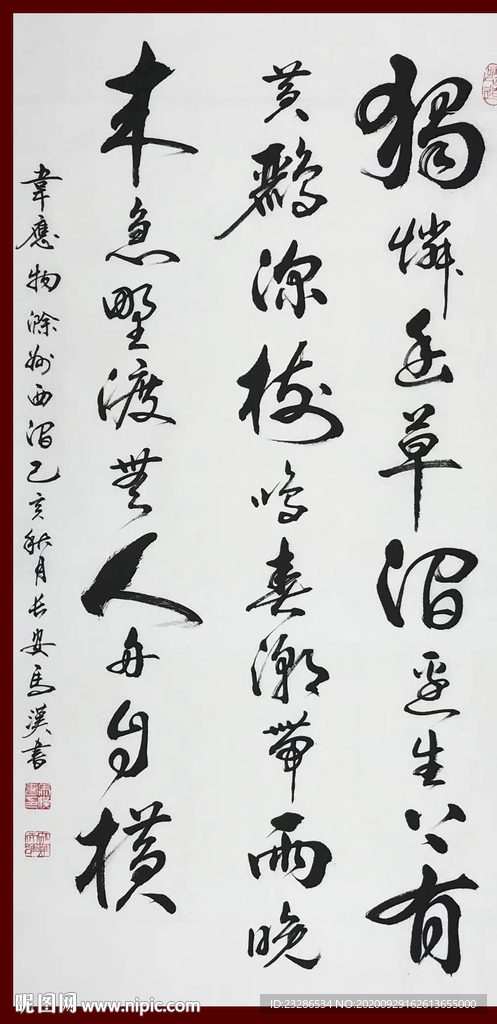 獨憐幽草澗邊生上有
黄鸝深樹鳴春潮帶雨晚
来急野渡無人舟自横
韋應物滁州西澗乙亥秋月長安馬漢書
昵图网 www.nipic.com
ID:23286534 NO:20200929162613655000